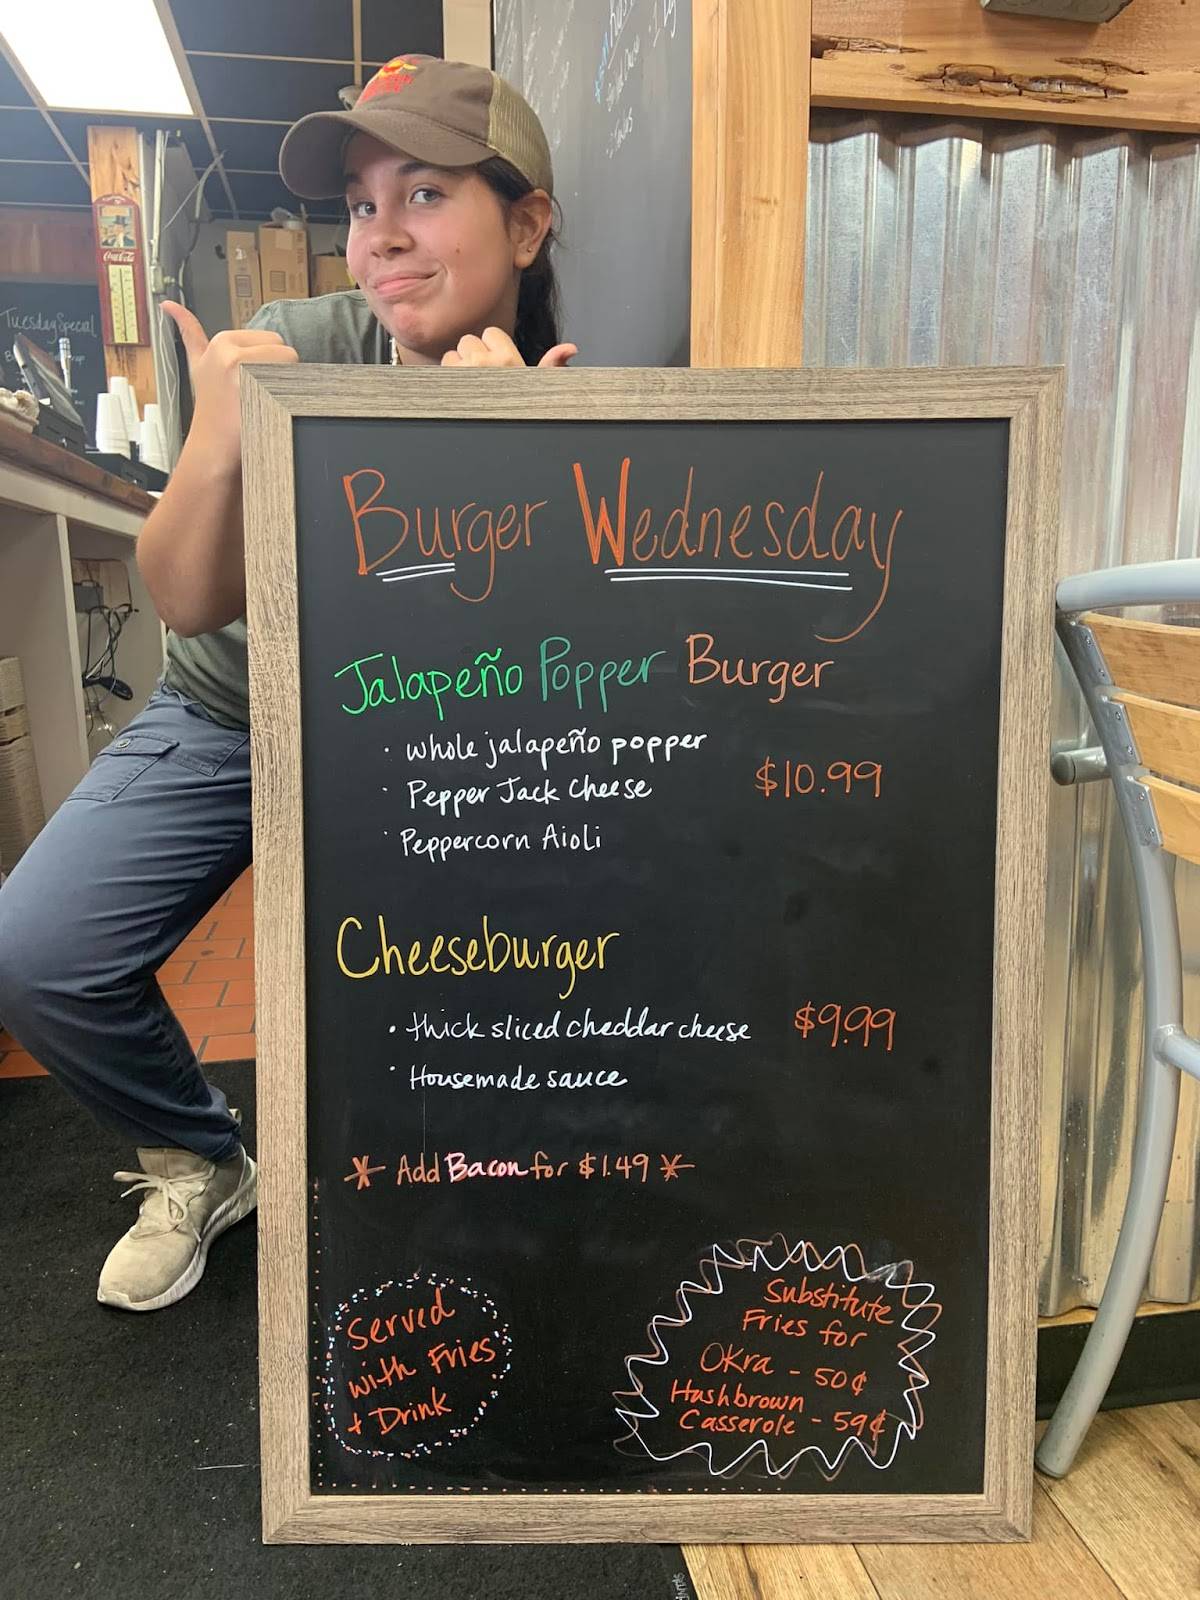 Coca-Cola
Tuesday Special
Burger Wednesday
Jalapeño Popper Burger
· whole jalapeño popper
· Pepper Jack Cheese
$10.99
· Peppercorn Aioli
Cheeseburger
· thick sliced cheddar cheese
$9.99
· Housemade sauce
* Add Bacon for $1.49 *
Served
with Fries
+ Drink
Substitute
Fries for
Okra - 50¢
Hashbrown
Casserole - 59¢